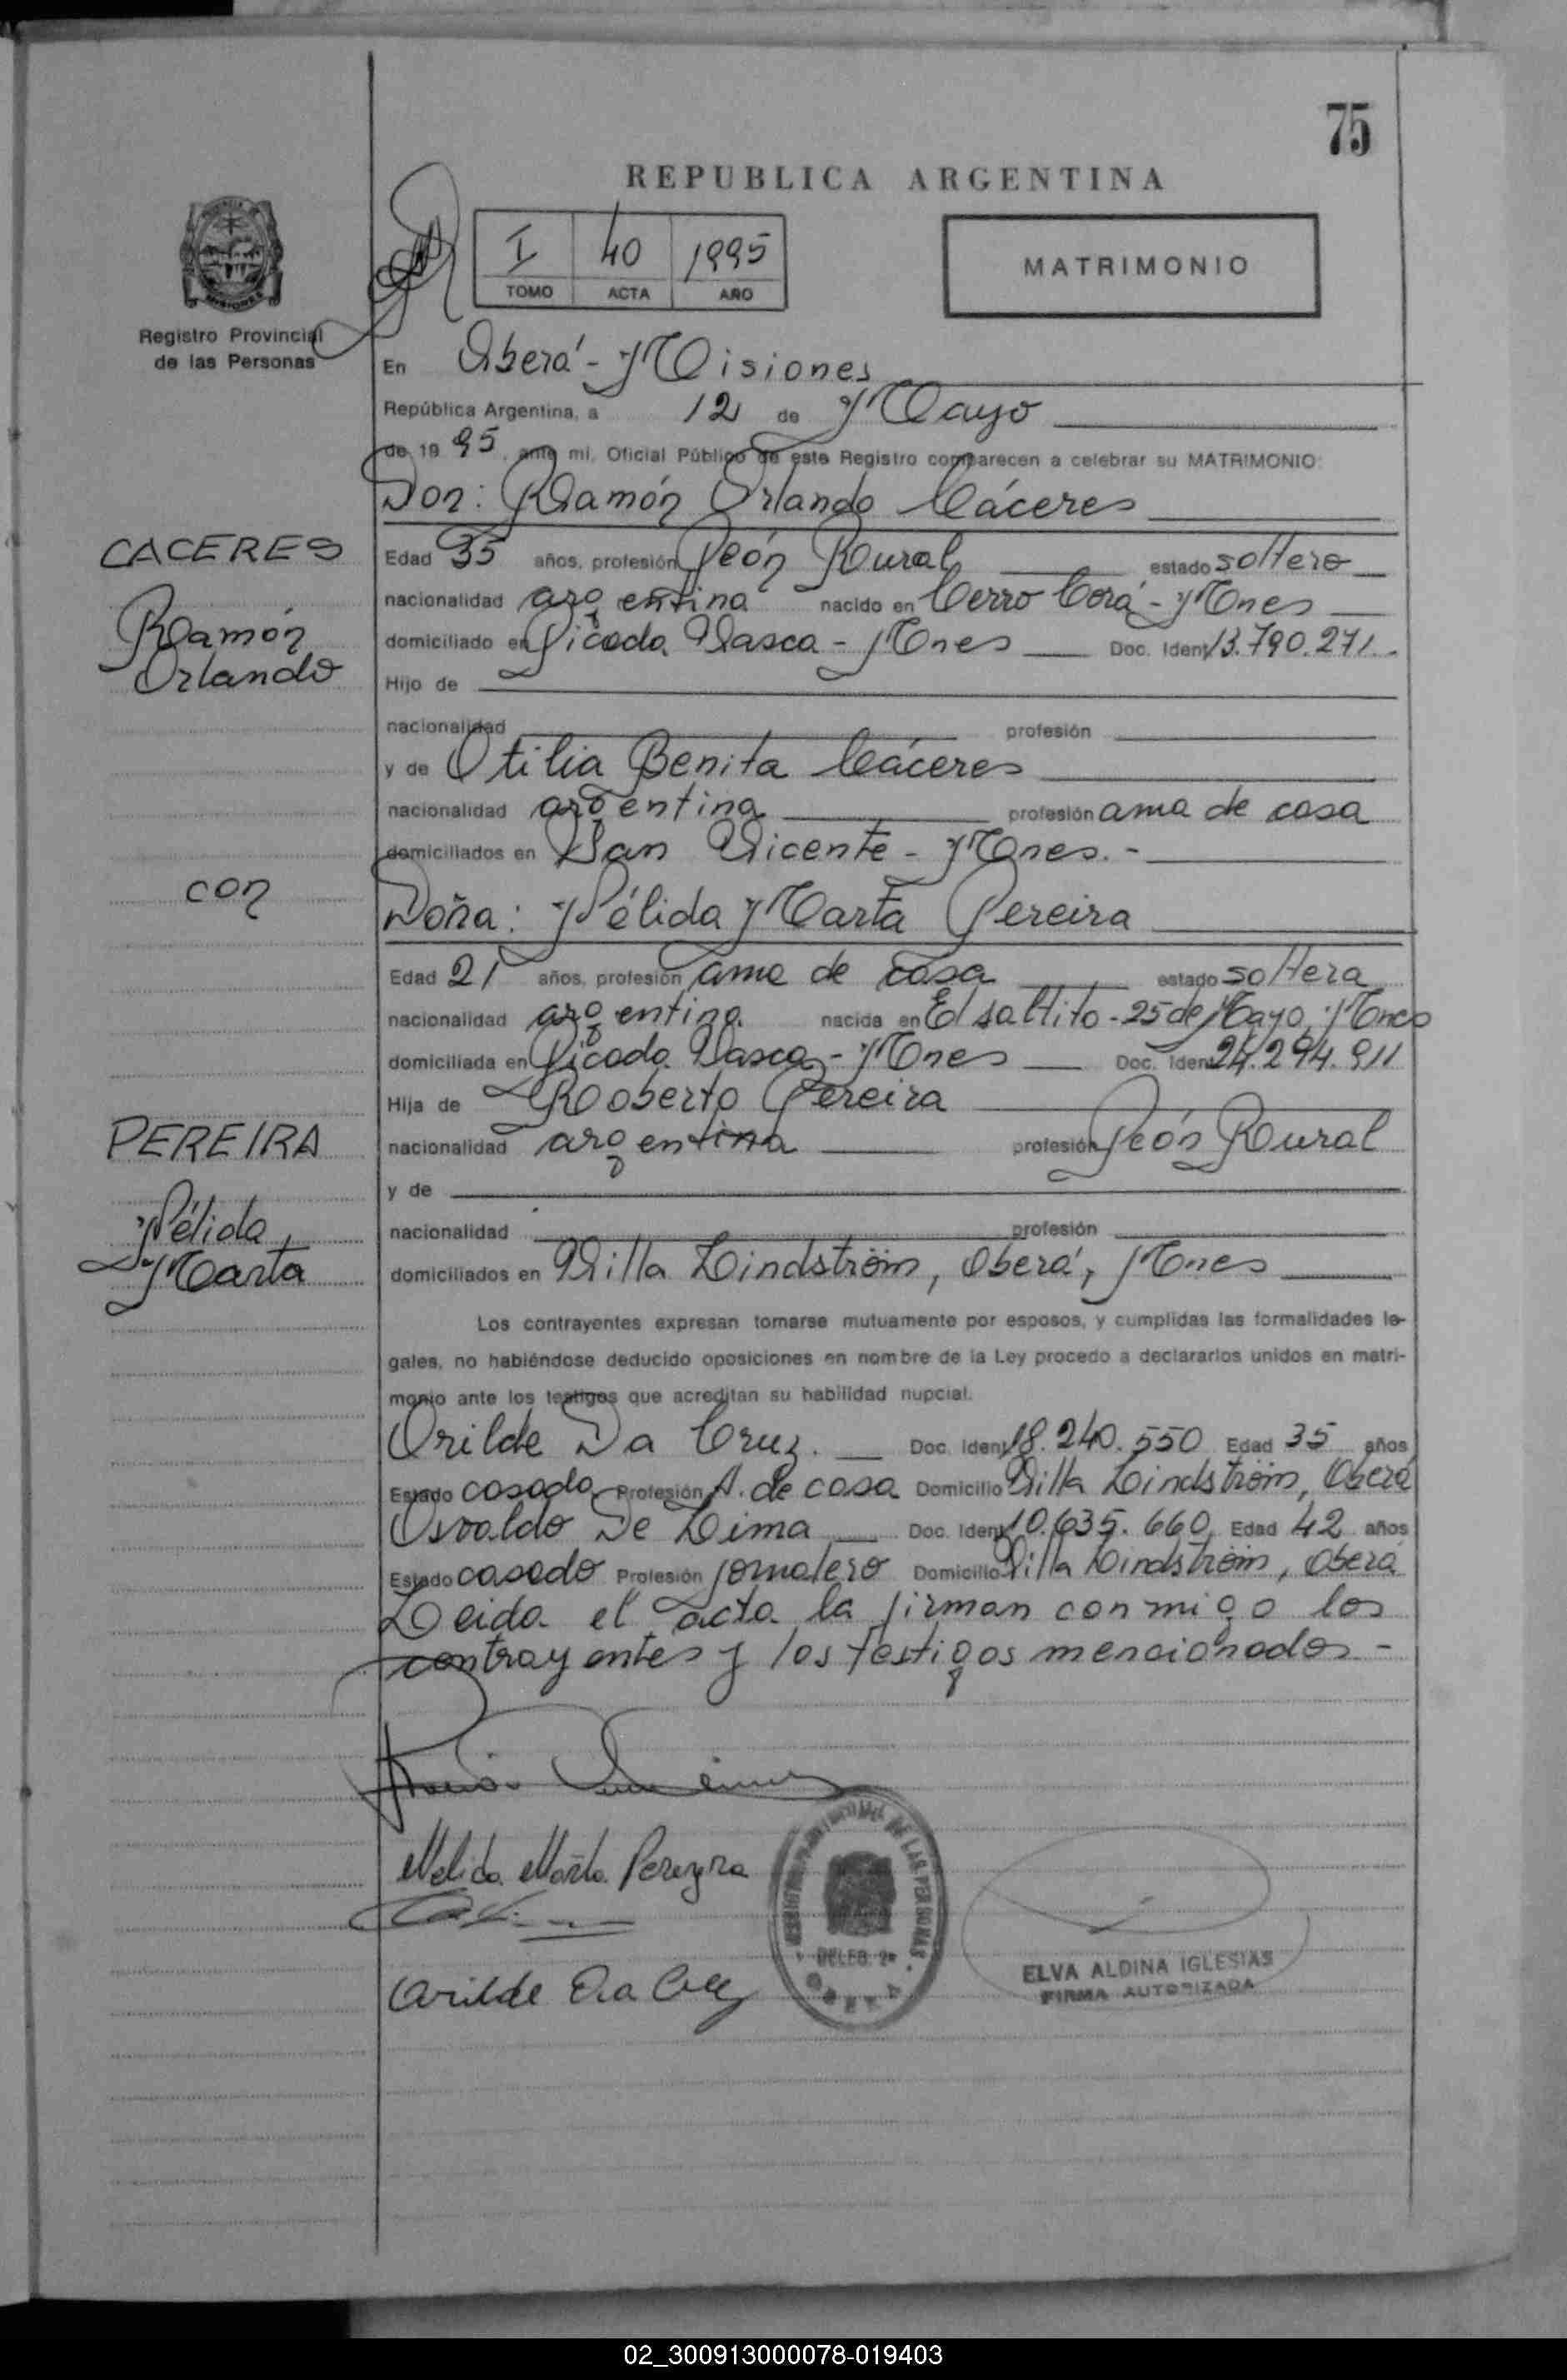 75
REPUBLICA ARGENTINA
I 40 1995
TOMO ACTA AÑO
MATRIMONIO
Registro Provincial
de las Personas
En Oberá - Misiones
República Argentina, a 12 de Mayo
de 1995, ante mi, Oficial Público de este Registro comparecen a celebrar su MATRIMONIO:
Don: Ramón Orlando Cáceres
CACERES
Ramón
Orlando
Edad 35 años, profesión Peón Rural estado soltero
nacionalidad argentina nacido en Cerro Corá - Mnes
domiciliado en Picada Vasca - Mnes Doc. Ident. 13.790.271.-
Hijo de
nacionalidad profesión
y de Otilia Benita Cáceres
nacionalidad argentina profesión ama de casa
domiciliados en San Vicente - Mnes.-
con
Doña: Nélida Marta Pereira
Edad 21 años, profesión ama de casa estado soltera
nacionalidad argentina nacida en El saltito - 25 de Mayo, Mnes
domiciliada en Picada Vasca - Mnes Doc. Ident. 24.294.911
Hija de Roberto Pereira
PEREIRA
Nélida
Marta
nacionalidad argentina profesión Peón Rural
y de
nacionalidad profesión
domiciliados en Villa Lindström, Oberá, Mnes
Los contrayentes expresan tomarse mutuamente por esposos, y cumplidas las formalidades le-
gales, no habiéndose deducido oposiciones en nombre de la Ley procedo a declararlos unidos en matri-
monio ante los testigos que acreditan su habilidad nupcial.
Orilde Da Cruz. Doc. Ident. 18.240.550 Edad 35 años
Estado casada Profesión A. de casa Domicilio Villa Lindström, Oberá
Osvaldo De Lima Doc. Ident. 10.635.660 Edad 42 años
Estado casado Profesión jornalero Domicilio Villa Lindström, Oberá
Leida el acta la firman conmigo los
contrayentes y los testigos mencionados -
Nelida Marta Pereyra
REGISTRO PROVINCIAL DE LAS PERSONAS
DELEG. 2ª
OBERA
Orilde Da Cruz
ELVA ALDINA IGLESIAS
FIRMA AUTORIZADA
02_300913000078-019403